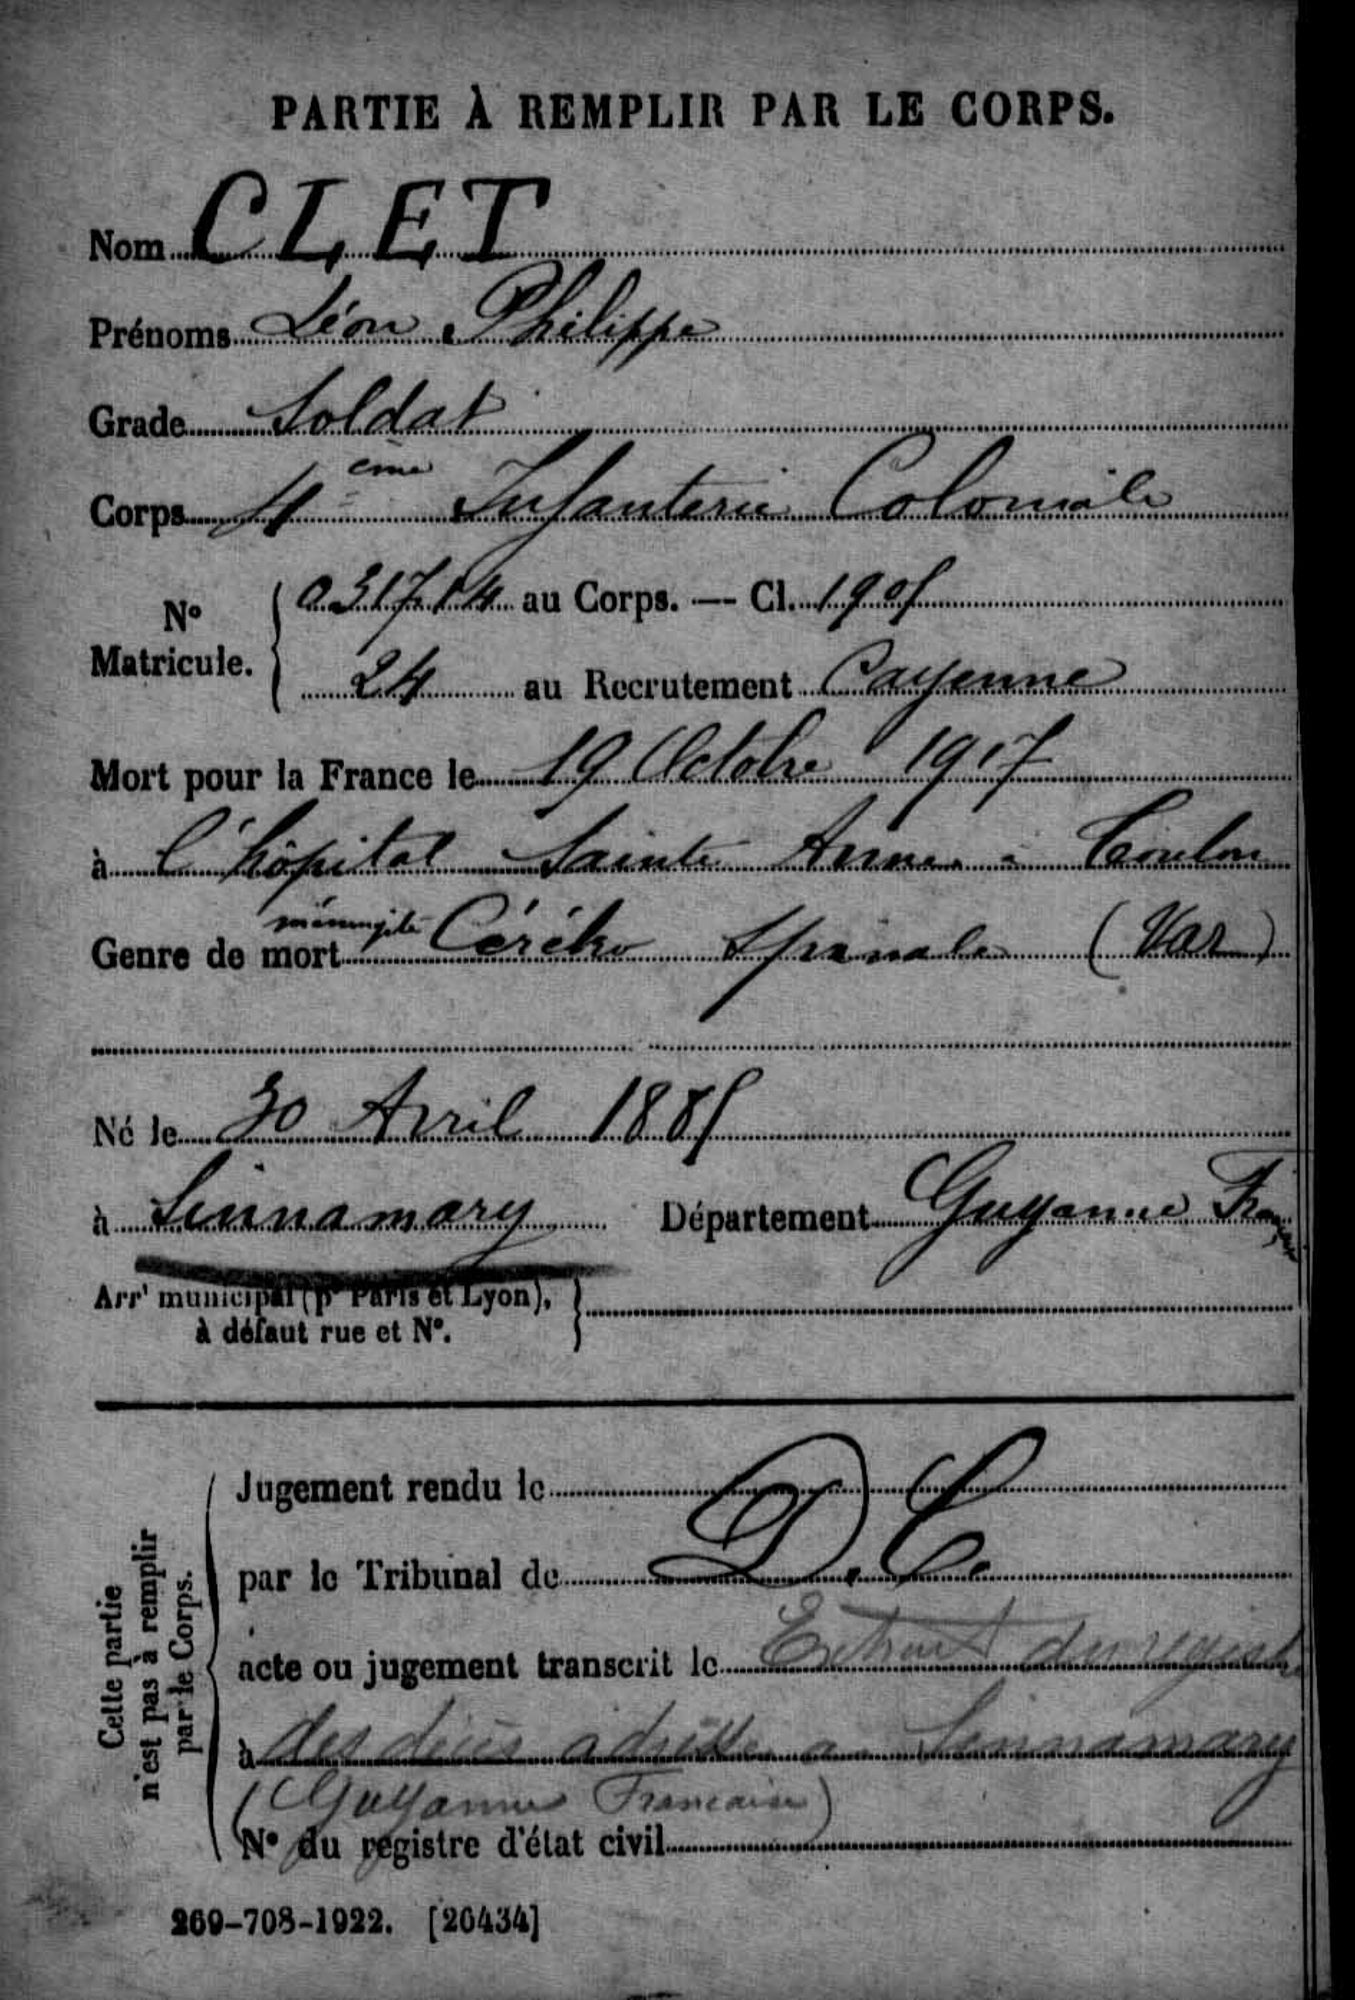 PARTIE À REMPLIR PAR LE CORPS.
Nom CLET
Prénoms Léon Philippe
Grade Soldat
Corps 4 ème Infanterie Coloniale
N° Matricule. 031714 au Corps. — Cl. 1905
24 au Recrutement Cayenne
Mort pour la France le 19 Octobre 1917
à l'hôpital Sainte Anne à Toulon
Genre de mort méningite Cérébro Spinale (Var)
Né le 30 Avril 1885
à Sinnamary Département Guyanne Française
Arrt municipal (pr Paris et Lyon),
à défaut rue et N°.
Cette partie
n'est pas à remplir
par le Corps.
Jugement rendu le
par le Tribunal de D.C.
acte ou jugement transcrit le Extrait du registre
à des décès adressé a Sinnamary
(Guyanne Francaise)
N° du registre d'état civil
269-708-1922. [26434]